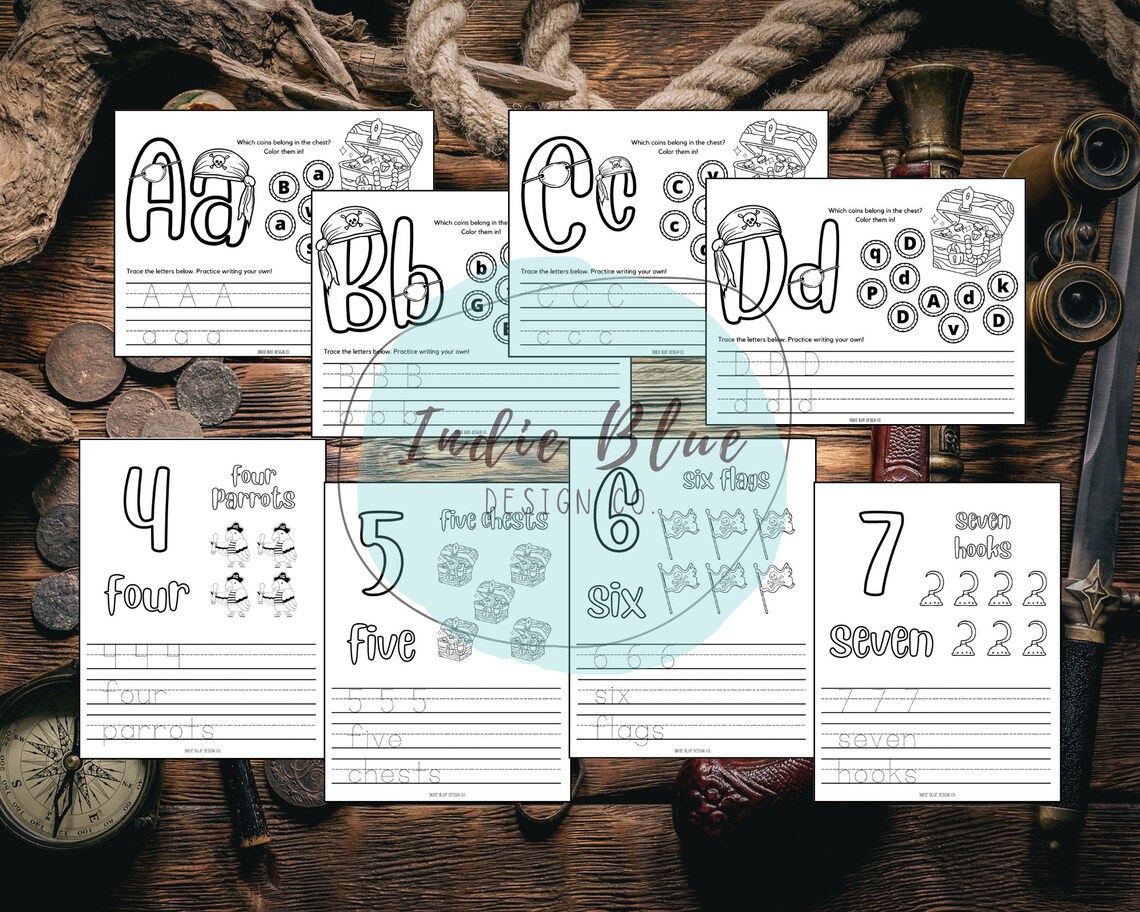 Aa
Which coins belong in the chest?
Color them in!
B
a
a
Trace the letters below. Practice writing your own!
A A A
a a a
INDIE BLUE DESIGN CO.
Bb
Which coins belong in the
Color them in!
b
G
Trace the letters below. Practice writing your own!
B B B
b b b
INDIE BLUE DESIGN CO.
Cc
Which coins belong in the chest?
Color them in!
C
c
Trace the letters below. Practice writing your own!
C C C
c c c
INDIE BLUE DESIGN CO.
Dd
Which coins belong in the chest?
Color them in!
q
D
d
P
D
A
d
k
v
D
Trace the letters below. Practice writing your own!
D D D
d d d
INDIE BLUE DESIGN CO.
Indie Blue
DESIGN CO.
4
four
parrots
four
4 4 4
four
parrots
INDIE BLUE DESIGN CO.
5
five chests
five
5 5 5
five
chests
INDIE BLUE DESIGN CO.
6
six flags
six
6 6 6
six
flags
INDIE BLUE DESIGN CO.
7
seven
hooks
seven
7 7 7
seven
hooks
INDIE BLUE DESIGN CO.